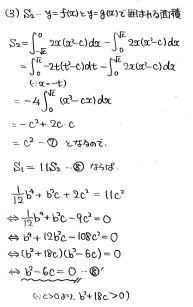 (3) S₂… y=f(x)とy=g(x)で囲まれる面積
S₂=∫_{-√c}^{0} 2x(x²-c)dx - ∫_{0}^{√c} 2x(x²-c)dx
=∫_{√c}^{0} -2t(t²-c)(-dt) - ∫_{0}^{√c} 2x(x²-c)dx
(∵x=-t)
= -4∫_{0}^{√c} (x³-cx)dx
= -c²+2c·c
= c² -⑦ となるので、
S₁ = 11S₂ …⑧ ならば、
1/12 b⁴ + b²c + 2c² = 11c²
⇔ 1/12 b⁴ + b²c - 9c² = 0
⇔ b⁴ + 12b²c - 108c² = 0
⇔ (b²+18c)(b²-6c) = 0
⇔ b²-6c = 0 …⑧'
(∵c>0より、b²+18c>0)